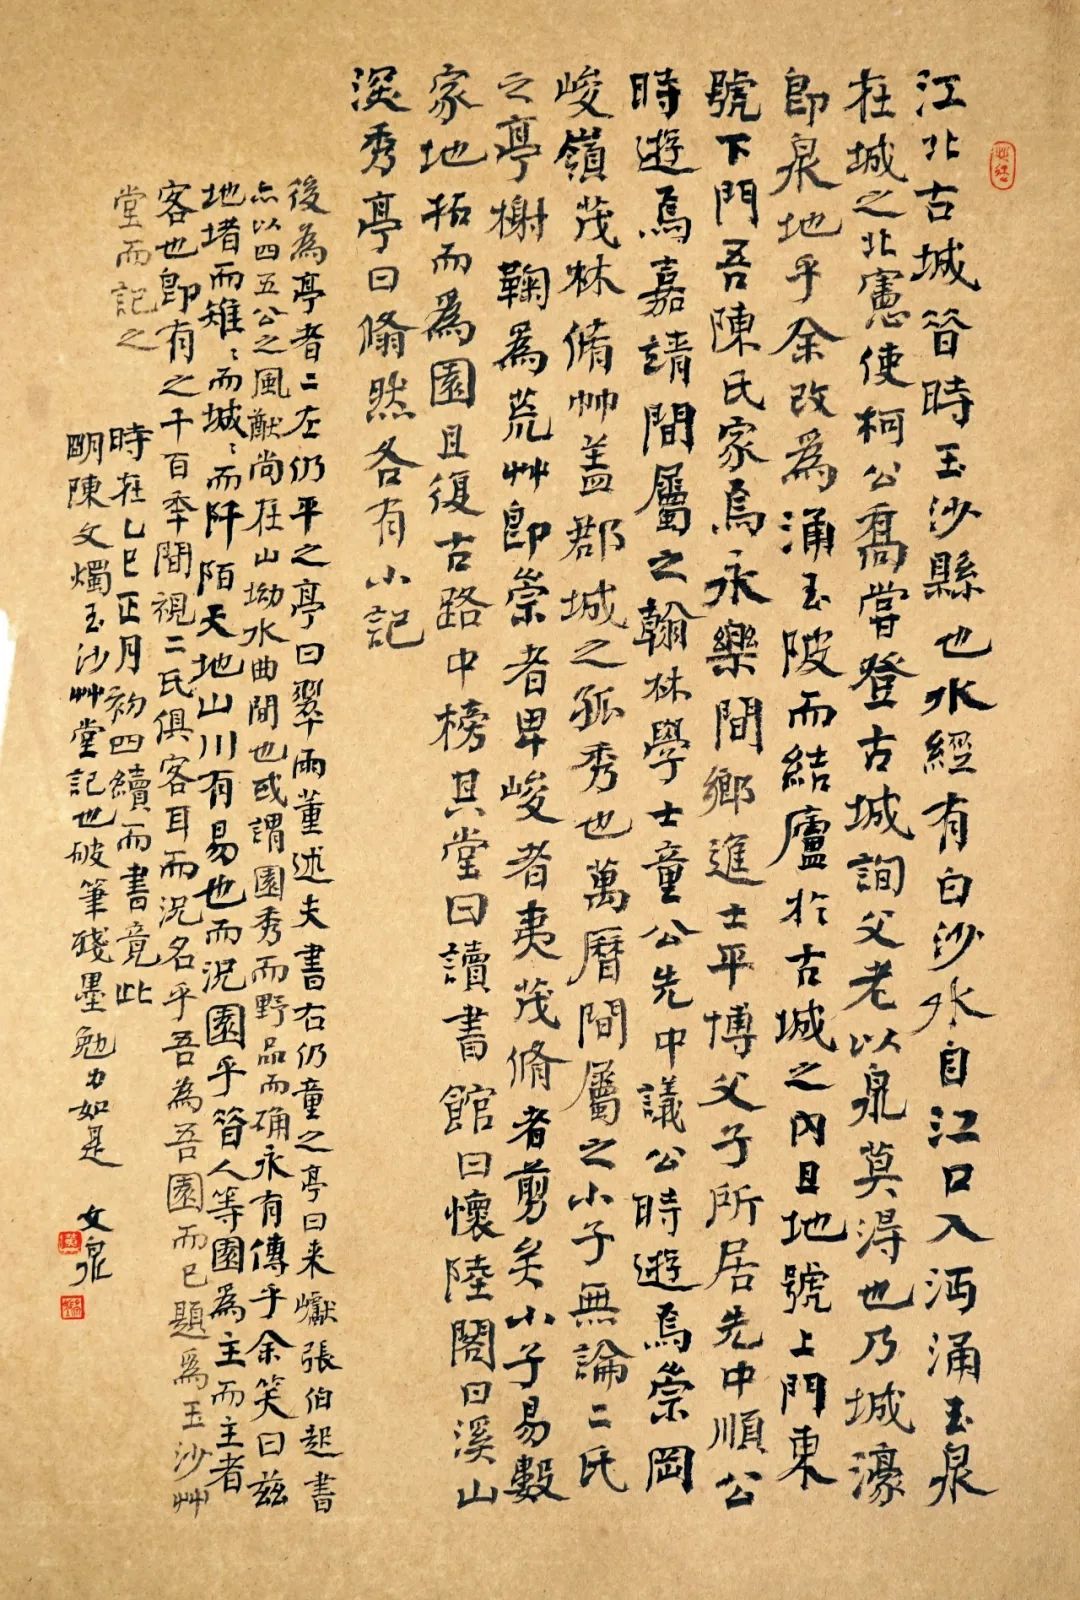 江北古城晉時玉沙縣也水經有白沙水自江口入沔涌玉泉
在城之北憲使柯公喬嘗登古城詢父老以泉莫得也乃城濠
即泉地乎余改為涌玉陂而結廬於古城之內且地號上門東
號下門吾陳氏家焉永樂間鄉進士平博父子所居先中順公
時遊焉嘉靖間屬之翰林學士童公先中議公時遊焉崇岡
峻嶺茂林脩艸蓋郡城之孤秀也萬曆間屬之小子無論二氏
之亭榭鞠為荒艸即崇者卑峻者夷茂脩者剪矣小子易數
家地拓而為園且復古路中榜其堂曰讀書館曰懷陸閣曰溪山
深秀亭曰翛然各有小記
後為亭者二左仍平之亭曰翠雨董述夫書右仍童之亭曰来巘張伯起書
亦以四五公之風猷尚在山坳水曲間也或謂園秀而野品而确永有傳乎余笑曰茲
地堵而雉雉而城城而阡陌天地山川有易也而況園乎昝人等園為主而主者
客也即有之千百季間視二氏俱客耳而況名乎吾為吾園而已題為玉沙艸
堂而記之
時在乙巳正月初四續而書竟此
明陳文燭玉沙艸堂記也破筆殘墨勉力如是
文泉